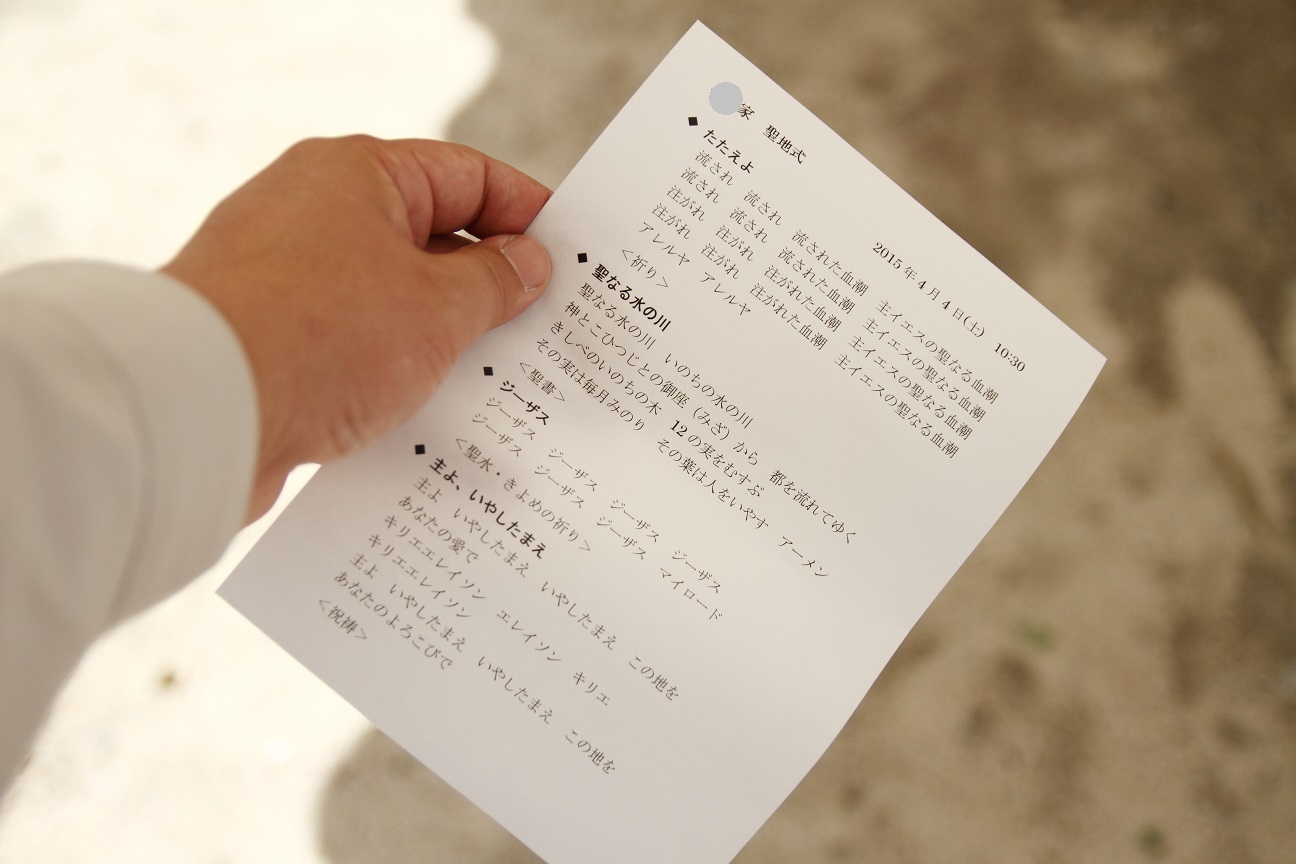 家　聖地式
2015年4月4日(土)　10:30
◆ たたえよ
流され　流され　流された血潮　主イエスの聖なる血潮
流され　流され　流された血潮　主イエスの聖なる血潮
注がれ　注がれ　注がれた血潮　主イエスの聖なる血潮
注がれ　注がれ　注がれた血潮　主イエスの聖なる血潮
アレルヤ　アレルヤ
＜祈り＞
◆ 聖なる水の川
聖なる水の川　いのちの水の川
神とこひつじとの御座（みざ）から　都を流れてゆく
きしべのいのちの木　12の実をむすぶ
その実は毎月みのり　その葉は人をいやす　アーメン
＜聖書＞
◆ ジーザス
ジーザス　ジーザス　ジーザス　ジーザス
ジーザス　ジーザス　ジーザス　マイロード
＜聖水・きよめの祈り＞
◆ 主よ、いやしたまえ
主よ　いやしたまえ　いやしたまえ　この地を
あなたの愛で
キリエエレイソン　エレイソン　キリエ
キリエエレイソン
主よ　いやしたまえ　いやしたまえ　この地を
あなたのよろこびで
＜祝祷＞